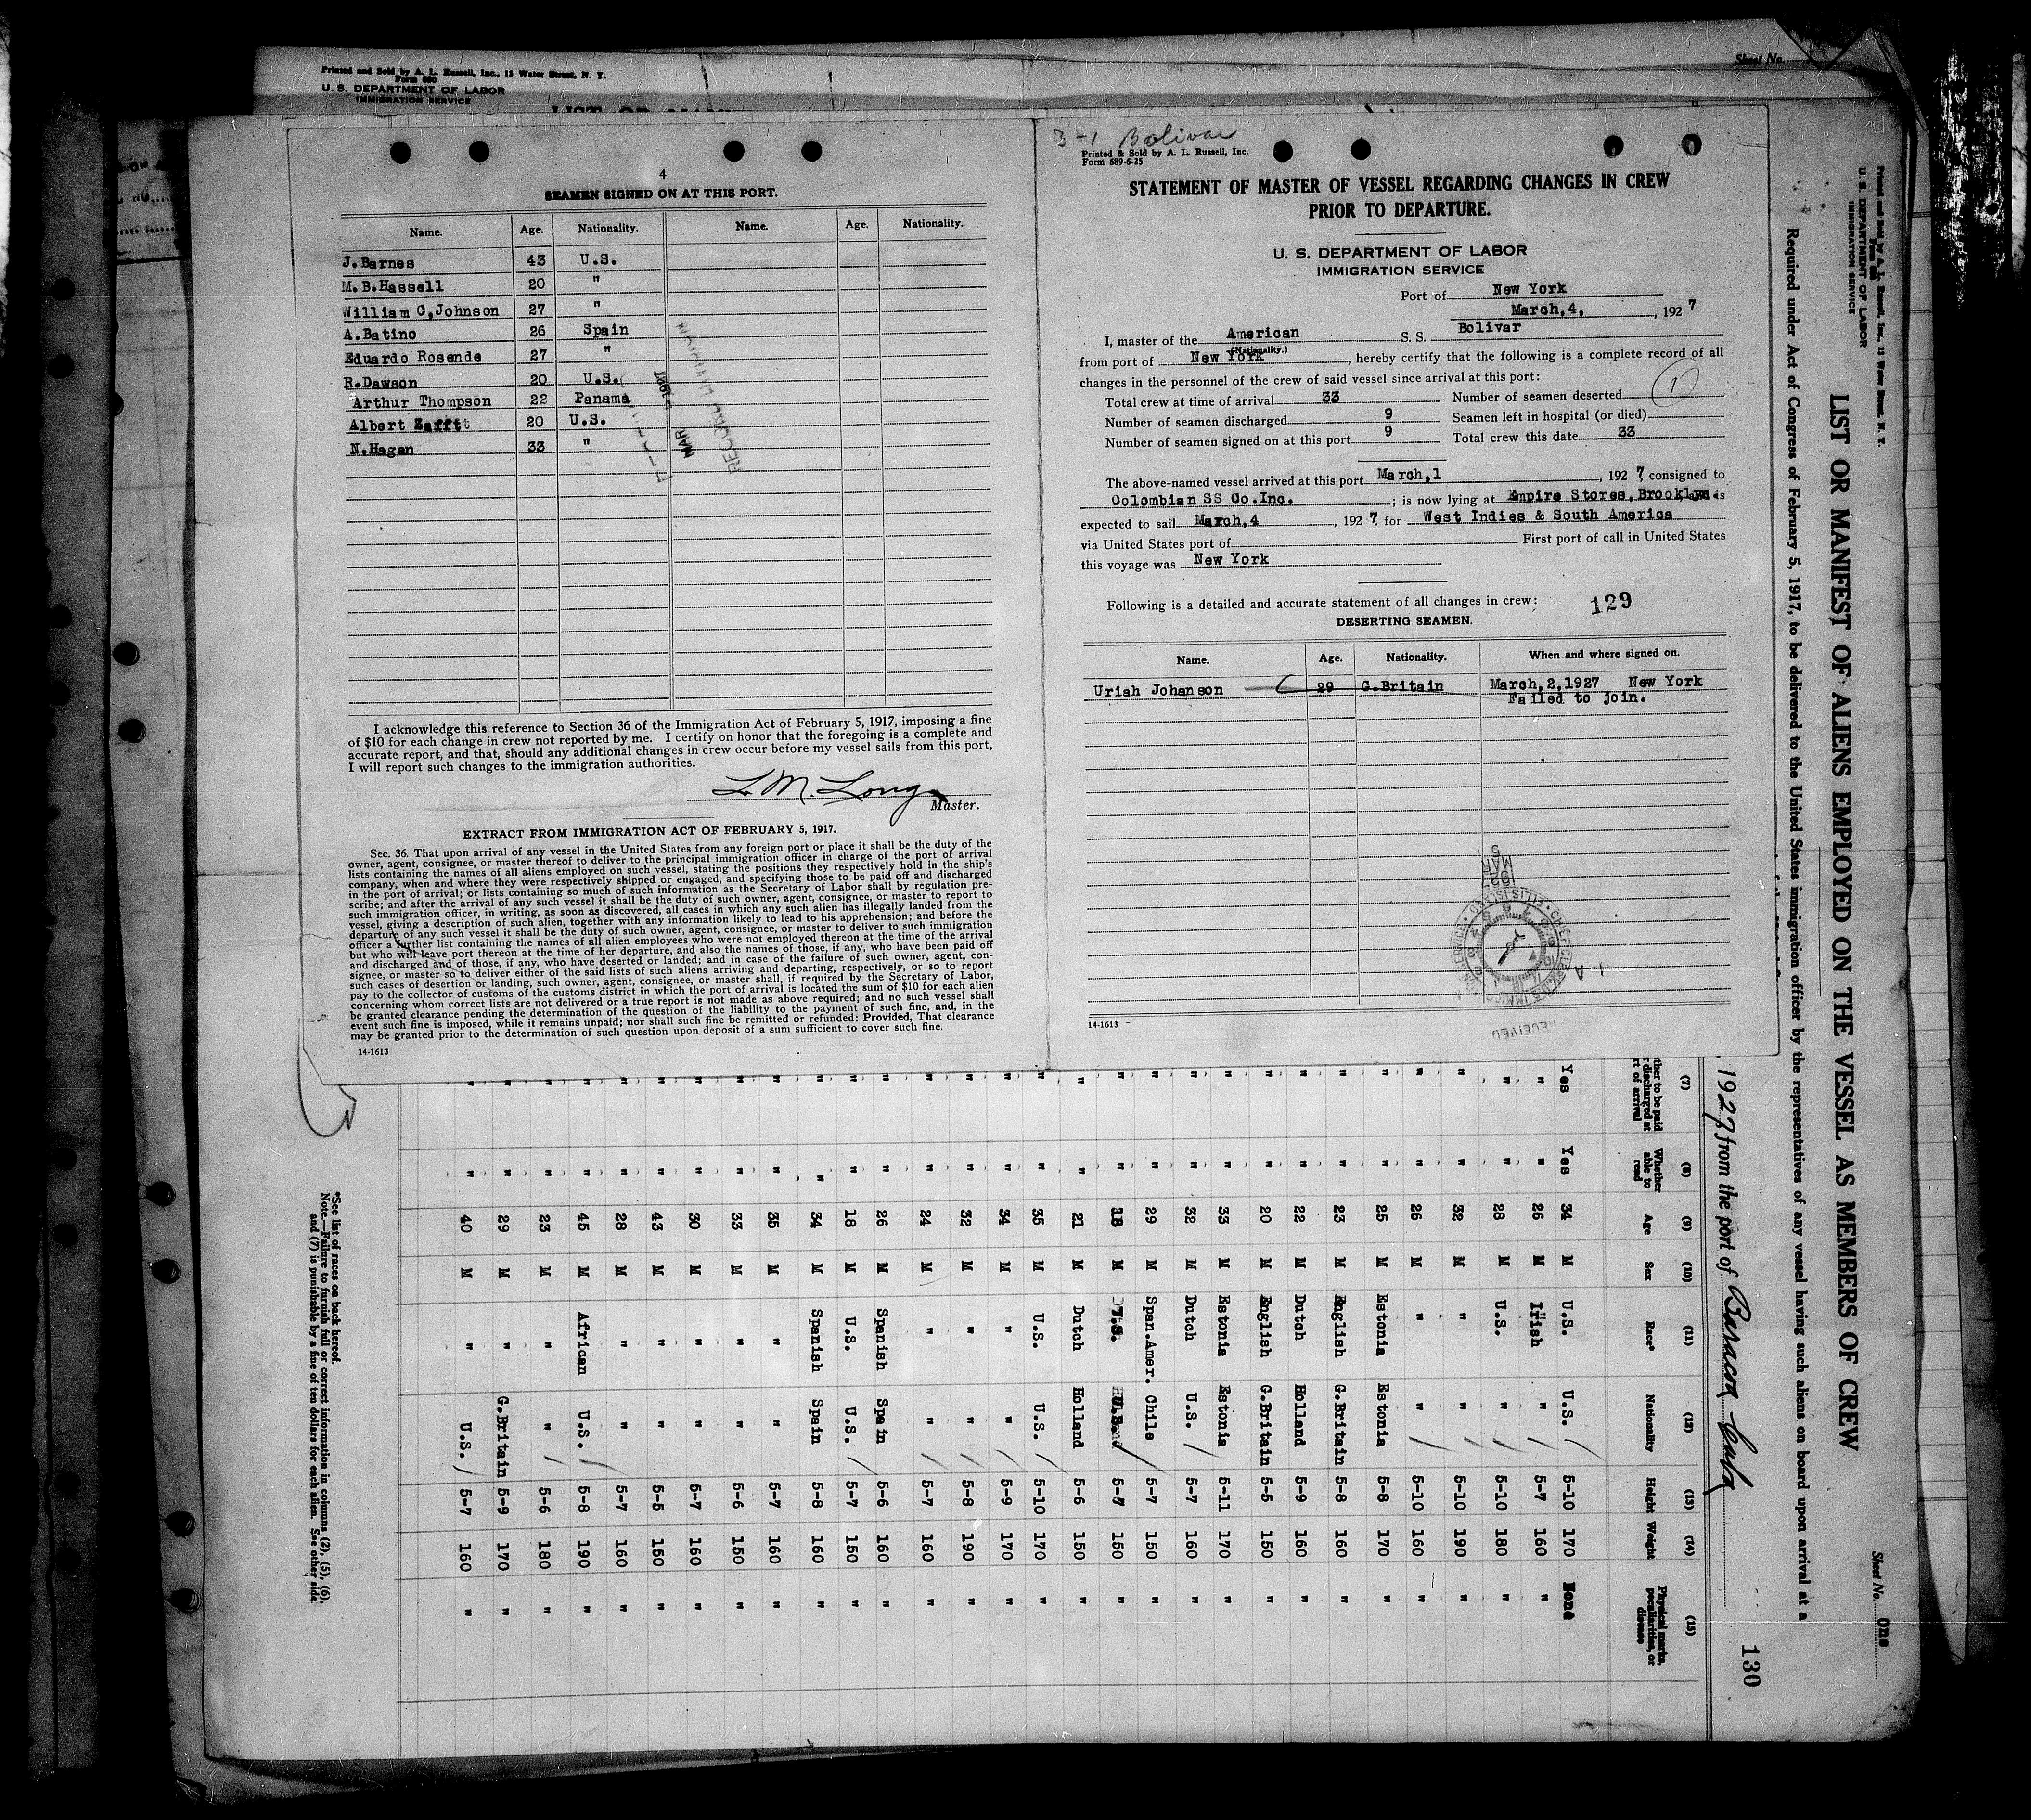 Printed and Sold by A. L. Russell, Inc., 13 Water Street, N. Y.
Form 680
U. S. DEPARTMENT OF LABOR
IMMIGRATION SERVICE
Sheet No.
4
SEAMEN SIGNED ON AT THIS PORT.
Name. Age. Nationality. Name. Age. Nationality.
J.Barnes 43 U.S.
M.B.Hassell 20 "
William C,Johnson 27 "
A.Batino 26 Spain
Eduardo Rosende 27 "
R.Dawson 20 U.S.
Arthur Thompson 22 Panama
Albert Zafft 20 U.S.
N.Hagan 33 "
I acknowledge this reference to Section 36 of the Immigration Act of February 5, 1917, imposing a fine
of $10 for each change in crew not reported by me. I certify on honor that the foregoing is a complete and
accurate report, and that, should any additional changes in crew occur before my vessel sails from this port,
I will report such changes to the immigration authorities.
L. M. Long
Master.
EXTRACT FROM IMMIGRATION ACT OF FEBRUARY 5, 1917.
Sec. 36. That upon arrival of any vessel in the United States from any foreign port or place it shall be the duty of the
owner, agent, consignee, or master thereof to deliver to the principal immigration officer in charge of the port of arrival
lists containing the names of all aliens employed on such vessel, stating the positions they respectively hold in the ship's
company, when and where they were respectively shipped or engaged, and specifying those to be paid off and discharged
in the port of arrival; or lists containing so much of such information as the Secretary of Labor shall by regulation pre-
scribe; and after the arrival of any such vessel it shall be the duty of such owner, agent, consignee, or master to report to
such immigration officer, in writing, as soon as discovered, all cases in which any such alien has illegally landed from the
vessel, giving a description of such alien, together with any information likely to lead to his apprehension; and before the
departure of any such vessel it shall be the duty of such owner, agent, consignee, or master to deliver to such immigration
officer a further list containing the names of all alien employees who were not employed thereon at the time of the arrival
but who will leave port thereon at the time of her departure, and also the names of those, if any, who have been paid off
and discharged and of those, if any, who have deserted or landed; and in case of the failure of such owner, agent, con-
signee, or master so to deliver either of the said lists of such aliens arriving and departing, respectively, or so to report
such cases of desertion or landing, such owner, agent, consignee, or master shall, if required by the Secretary of Labor,
pay to the collector of customs of the customs district in which the port of arrival is located the sum of $10 for each alien
concerning whom correct lists are not delivered or a true report is not made as above required; and no such vessel shall
be granted clearance pending the determination of the question of the liability to the payment of such fine, and, in the
event such fine is imposed, while it remains unpaid; nor shall such fine be remitted or refunded: Provided, That clearance
may be granted prior to the determination of such question upon deposit of a sum sufficient to cover such fine.
14-1613
3-1 Bolivar
Printed & Sold by A. L. Russell, Inc.
Form 689-6-25
STATEMENT OF MASTER OF VESSEL REGARDING CHANGES IN CREW
PRIOR TO DEPARTURE.
U. S. DEPARTMENT OF LABOR
IMMIGRATION SERVICE
Port of New York
March,4, , 192 7
I, master of the American S. S. Bolivar
(Nationality.)
from port of New York , hereby certify that the following is a complete record of all
changes in the personnel of the crew of said vessel since arrival at this port:
Total crew at time of arrival 33 Number of seamen deserted 1
Number of seamen discharged 9 Seamen left in hospital (or died)
Number of seamen signed on at this port 9 Total crew this date 33
The above-named vessel arrived at this port March,1 , 192 7, consigned to
Colombian SS Co.Inc. ; is now lying at Empire Stores,Brooklyn. is
expected to sail March,4 , 192 7. for West Indies & South America
via United States port of First port of call in United States
this voyage was New York
Following is a detailed and accurate statement of all changes in crew: 129
DESERTING SEAMEN.
Name. Age. Nationality. When and where signed on.
Uriah Johanson 29 G.Britain March,2,1927 New York
Failed to join.
1927
MAR
5
RECEIVED
14-1613
Printed and Sold by A. L. Russell, Inc., 13 Water Street, N. Y.
Form 680
U. S. DEPARTMENT OF LABOR
IMMIGRATION SERVICE
Sheet No. One
LIST OR MANIFEST OF ALIENS EMPLOYED ON THE VESSEL AS MEMBERS OF CREW
Required under Act of Congress of February 5, 1917, to be delivered to the United States immigration officer by the representatives of any vessel having such aliens on board upon arrival at a
130
1927, from the port of Baracoa Cuba
(7) (8) (9) (10) (11) (12) (13) (14) (15)
ther to be paid discharged at rt of arrival Whether able to read Age Sex Race* Nationality Height Weight Physical marks, peculiarities, or disease
Yes Yes 34 M U.S. U.S. 5-10 170 None
" " 26 M Irish " 5-7 160 "
" " 28 M U.S. " 5-10 180 "
" " 32 M " " 5-10 190 "
" " 26 M " " 5-10 160 "
" " 25 M Estonia Estonia 5-8 170 "
" " 23 M English G.Britain 5-8 160 "
" " 22 M Dutch Holland 5-9 160 "
" " 20 M English G.Britain 5-5 150 "
" " 33 M Estonia Estonia 5-11 170 "
" " 32 M Dutch U.S. 5-7 160 "
" " 29 M Span.Amer. Chile 5-7 150 "
" " M U.S. U.S. 5-7 150 "
" " 21 M Dutch Holland 5-6 150 "
" " 35 M U.S. U.S. 5-10 170 "
" " 34 M " " 5-9 170 "
" " 32 M " " 5-8 190 "
" " 24 M " " 5-7 160 "
" " 26 M Spanish Spain 5-6 160 "
" " 18 M U.S. U.S. 5-7 150 "
" " 34 M Spanish Spain 5-8 160 "
" " 35 M " " 5-7 160 "
" " 33 M " " 5-6 150 "
" " 30 M " " 5-7 160 "
" " 43 M " " 5-5 150 "
" " 28 M " " 5-7 160 "
" " 45 M African U.S. 5-8 190 "
" " 23 M " " 5-6 180 "
" " 29 M " G.Britain 5-9 170 "
" " 40 M " U.S. 5-7 160 "
*See list of races on back hereof.
Note—Failure to furnish full or correct information in columns (2), (5), (6),
and (7) is punishable by a fine of ten dollars for each alien. See other side.